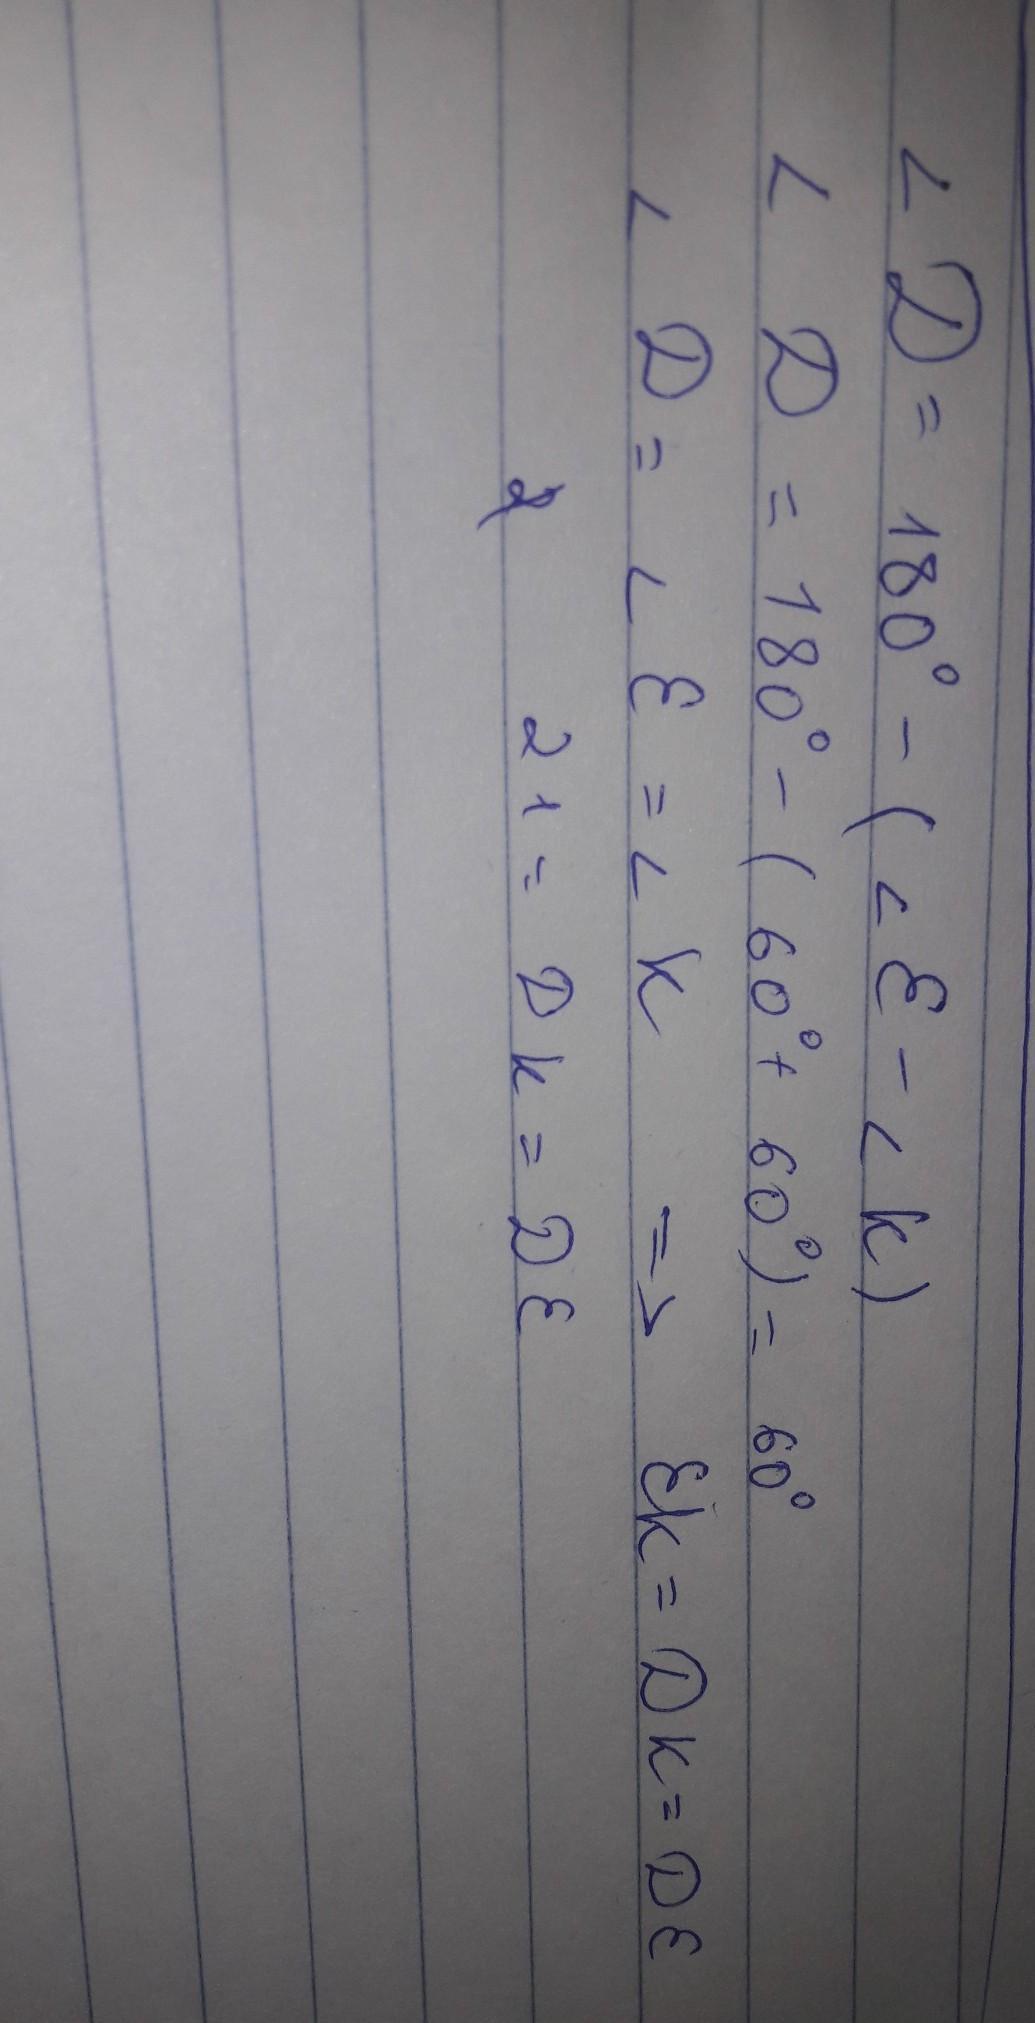 ∠ D = 180° - (∠ E - ∠ K)
∠ D = 180° - ( 60° + 60°) = 60°
∠ D = ∠ E = ∠ K => EK = DK = DE
21 = DK = DE